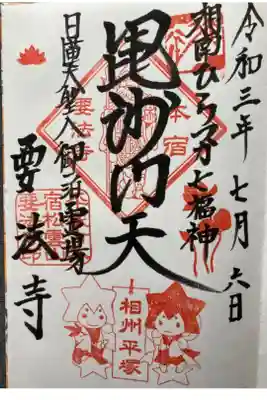 令和三年七月六日
湘南ひらつか七福神
毘沙門天
日蓮大聖人御泊霊場
要法寺
本宿
相州平塚